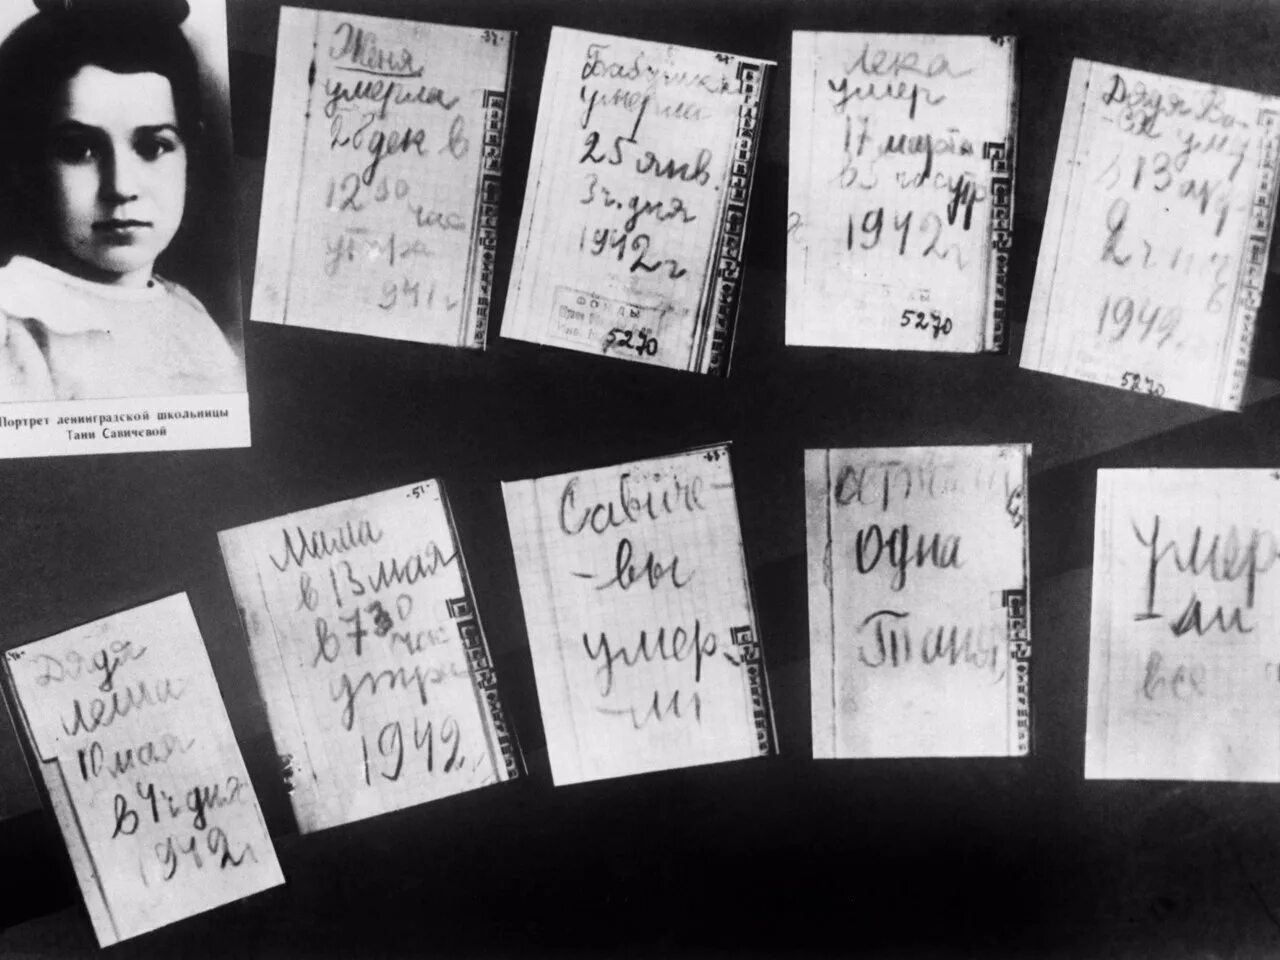 Портрет ленинградской школьницы
Тани Савичевой
Женя
умерла
28 дек в
12 30
час
утра
941 г
Бабушка
умерла
25 янв.
3 ч. дня
1942 г
5270
Лека
умер
17 марта
в 5 час утр
1942 г
5270
Дядя Ва-
-ся ум
в 13 апр
2 ч
1942
5270
Дядя
Леша
10 мая
в 4 ч дня
1942 г
Мама
в 13 мая
в 7 30
час
утра
1942
Савиче-
-вы
умер-
-ли
одна
Таня
умер
-ли
все